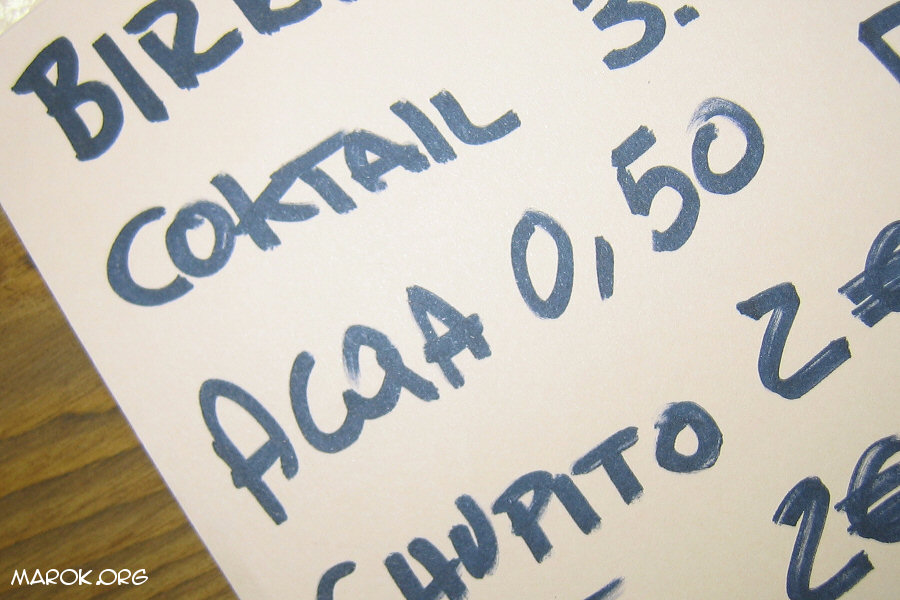 COKTAIL 3.
ACQA 0,50
CHUPITO 2
2
MAROK.ORG